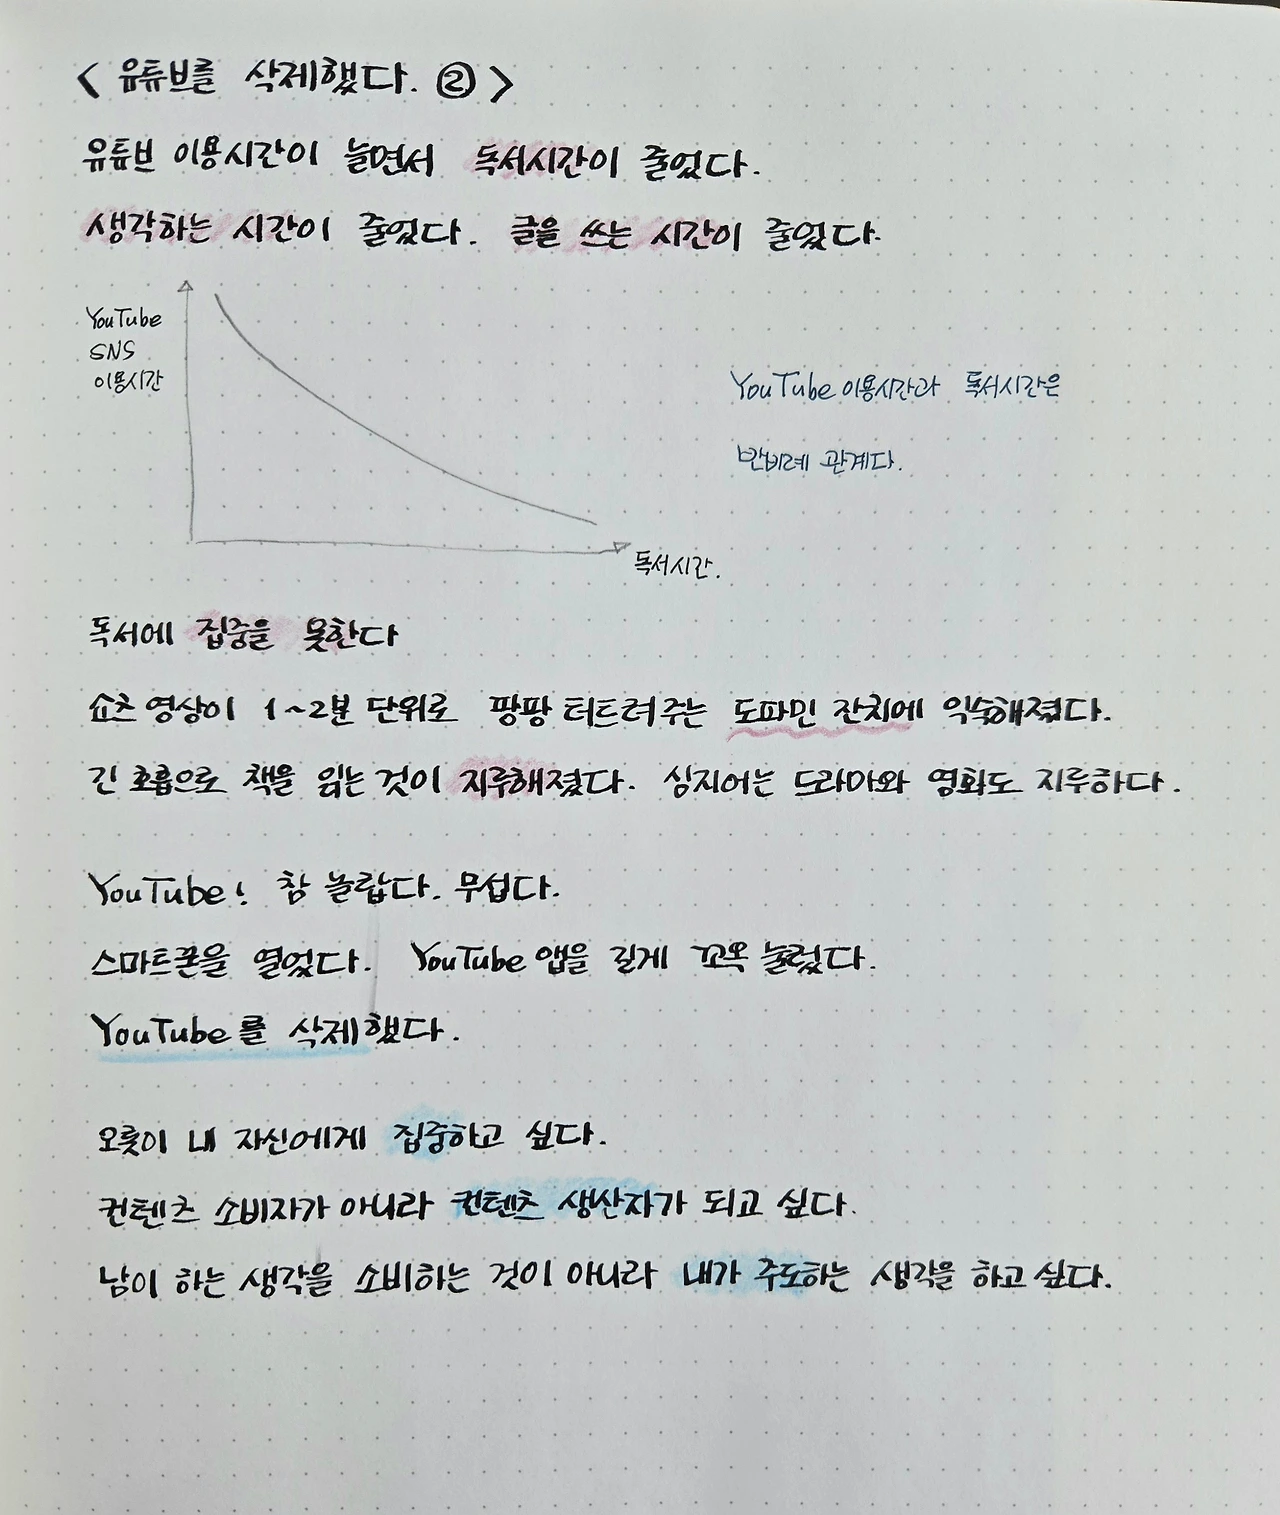 < 유튜브를 삭제했다. ② >
유튜브 이용시간이 늘면서 독서시간이 줄었다.
생각하는 시간이 줄었다. 글을 쓰는 시간이 줄었다.
YouTube
SNS
이용시간
YouTube 이용시간과 독서시간은
반비례 관계다.
독서시간.
독서에 집중을 못한다
쇼츠 영상이 1~2분 단위로 팡팡 터트려주는 도파민 잔치에 익숙해졌다.
긴 호흡으로 책을 읽는 것이 지루해졌다. 심지어는 드라마와 영화도 지루하다.
YouTube! 참 놀랍다. 무섭다.
스마트폰을 열었다. YouTube 앱을 길게 꼬옥 눌렀다.
YouTube를 삭제했다.
오롯이 내 자신에게 집중하고 싶다.
컨텐츠 소비자가 아니라 컨텐츠 생산자가 되고 싶다.
남이 하는 생각을 소비하는 것이 아니라 내가 주도하는 생각을 하고 싶다.